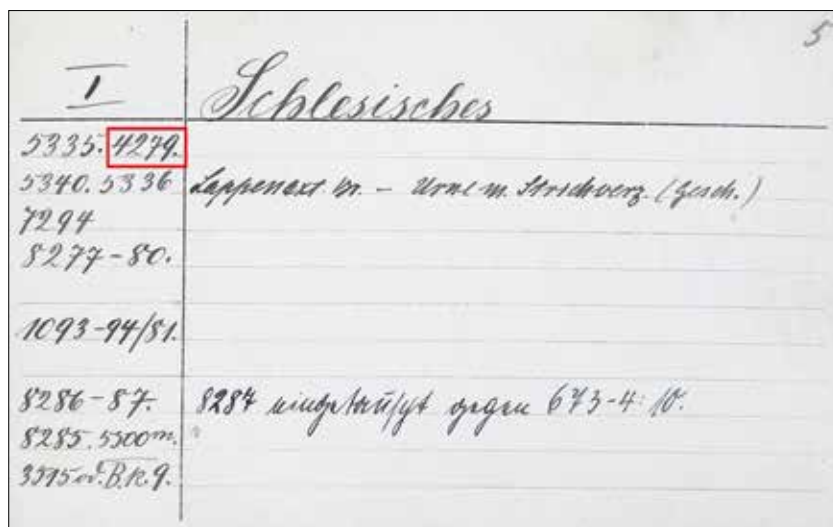 5
I Schlesisches
5335. 4279.
5340. 5336 Lappenaxt br. – Urne m. Strichverz. (Gesch.)
7294
8277-80.
1093-94/81.
8286-87. 8287 eingetauscht gegen 673-4:10.
8285. 5500m.
3515 od. B.K.9.